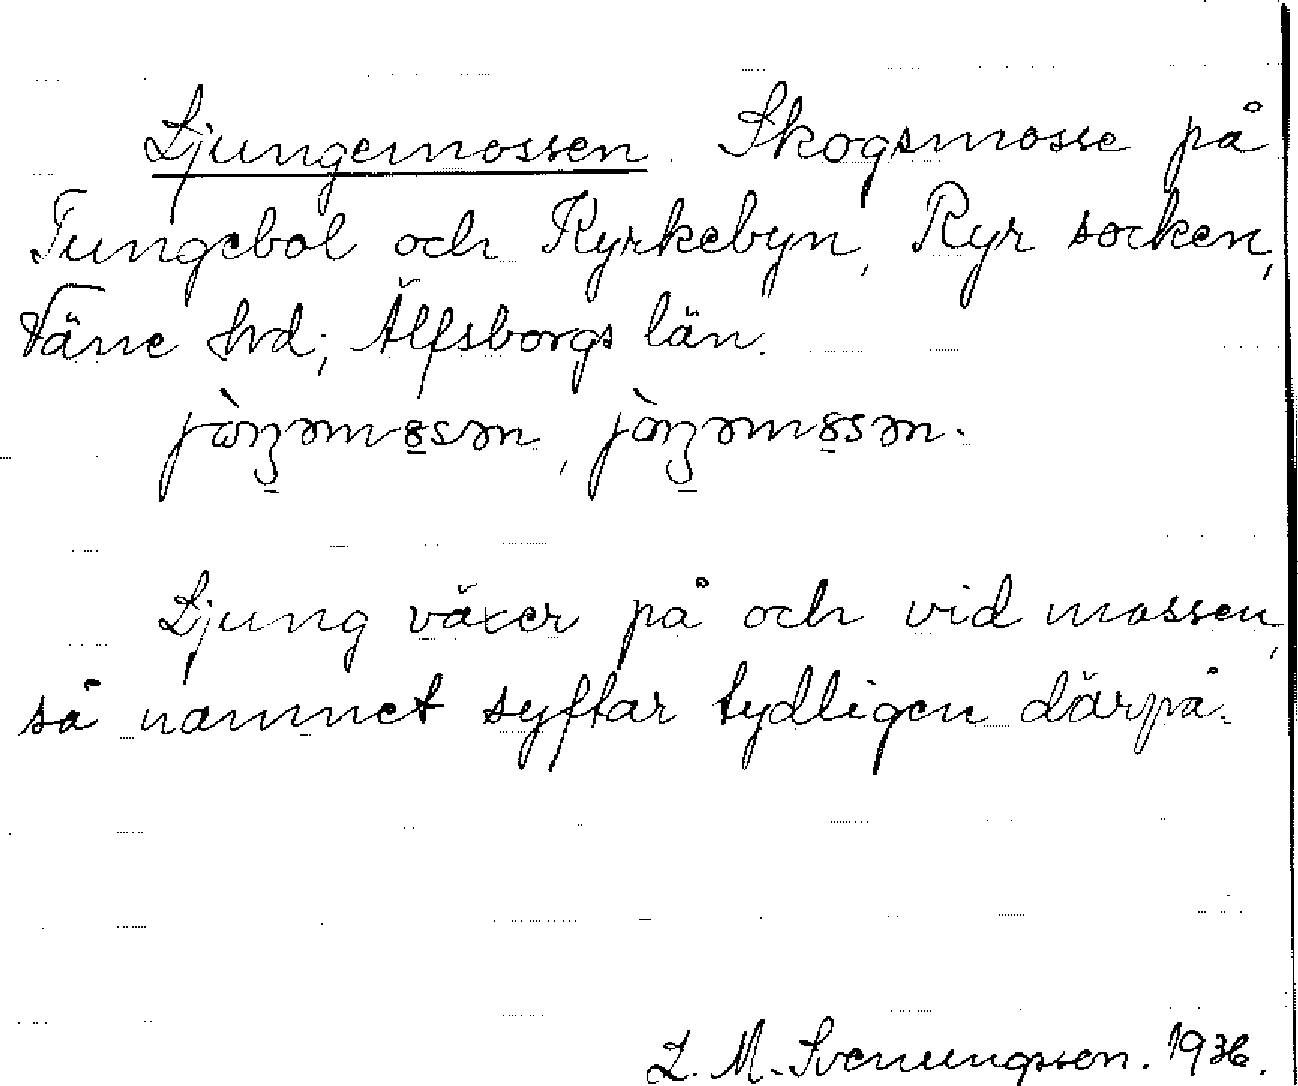 Ljungemossen. Skogsmosse på
Tungebol och Kyrkebyn, Ryr socken,
Väne hrd; Älfsborgs län.
Ljung växer på och vid mossen,
så namnet syftar tydligen därpå.
L. M. Svenungsson. 1936.